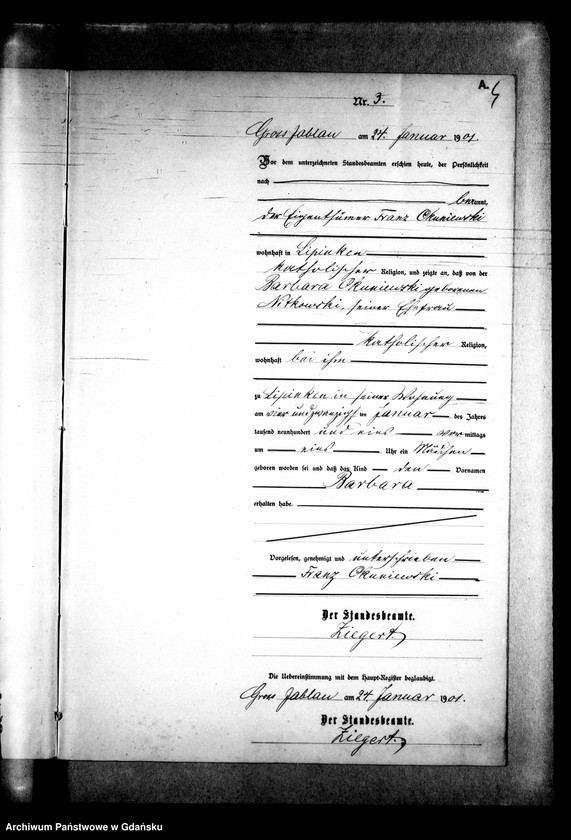 A.
5
Nr. 3.
Gross Jablau am 24. Januar 1901.
Vor dem unterzeichneten Standesbeamten erschien heute, der Persönlichkeit
nach
bekannt,
der Eigenthümer Franz Okuniewski
wohnhaft in Lipinken
katholischer Religion, und zeigte an, daß von der
Barbara Okuniewski geborenen
Nitkowski, seiner Ehefrau
katholischer Religion,
wohnhaft bei ihm
zu Lipinken in seiner Wohnung
am vier und zwanzigsten Januar des Jahres
tausend neunhundert und eins vormittags
um eins Uhr ein Mädchen
geboren worden sei und daß das Kind den Vornamen
Barbara
erhalten habe.
Vorgelesen, genehmigt und unterschrieben
Franz Okuniewski
Der Standesbeamte.
Ziegert.
Die Uebereinstimmung mit dem Haupt-Register beglaubigt.
Gross Jablau am 24. Januar 1901.
Der Standesbeamte.
Ziegert.
Archiwum Państwowe w Gdańsku